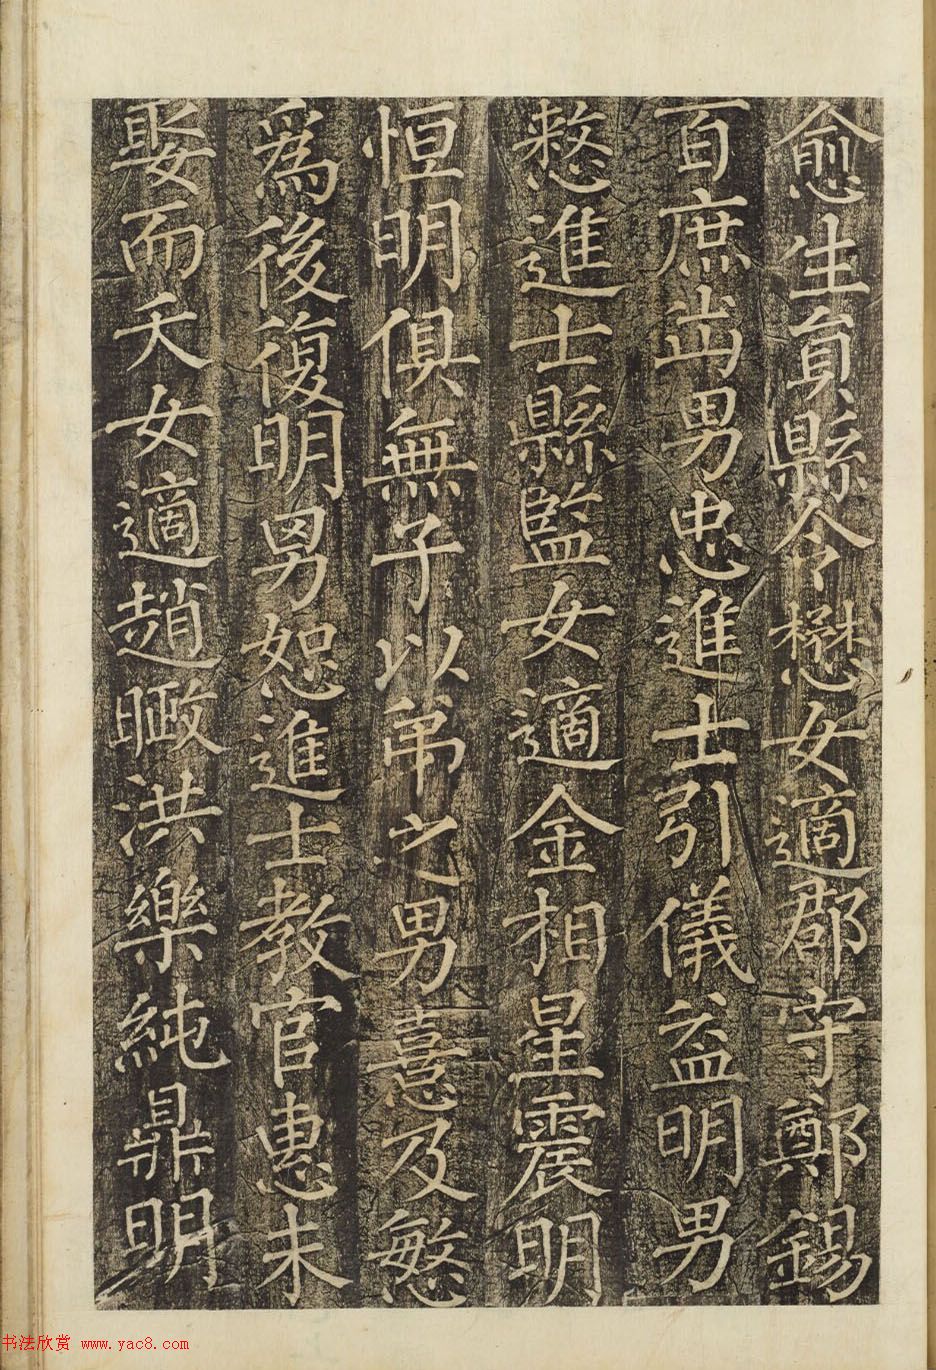 愈生員縣令懋女適郡守鄭錫
百庶出男忠進士引儀益明男
憗進士縣監女適金相星震明
恒明俱無子以弟之男憙及慜
爲後復明男恕進士教官恵未
娶而夭女適趙暾洪樂純鼎明
书法欣赏 www.yac8.com